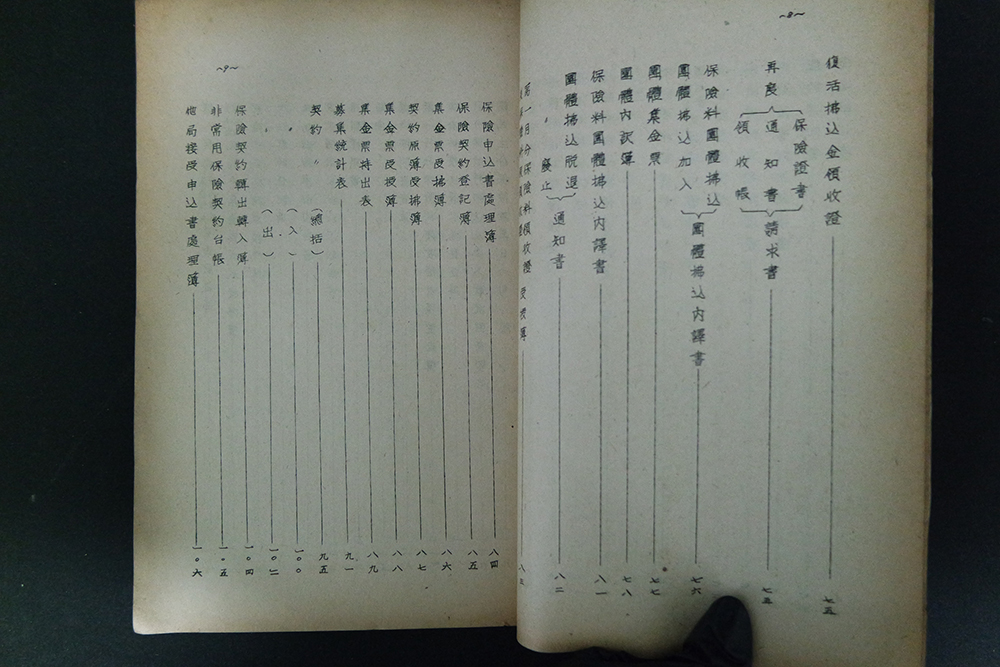 ~8~
復活拂込金領收證 七五
再度 保險證書 通知書 領收帳 請求書 七五
保險料團體拂込
團體拂込加入 團體拂込內譯書 七六
團體集金票 七七
團體內訳簿 七八
保險料團體拂込內譯書 八一
團體拂込脱退
〃 廢止 通知書 八二
第一回分保險料領收證受授簿
~9~
保險申込書處理簿 八四
保險契約登記簿 八五
集金票受拂簿 八六
契約原簿受拂簿 八七
集金票受授簿 八八
集金票持出表 八九
募集統計表 九一
契約 〃 (總括) 九五
〃 (入) 一〇〇
〃 (出) 一〇二
保險契約轉出轉入簿 一〇四
非常用保險契約台帳 一〇五
他局接受申込書處理簿 一〇六